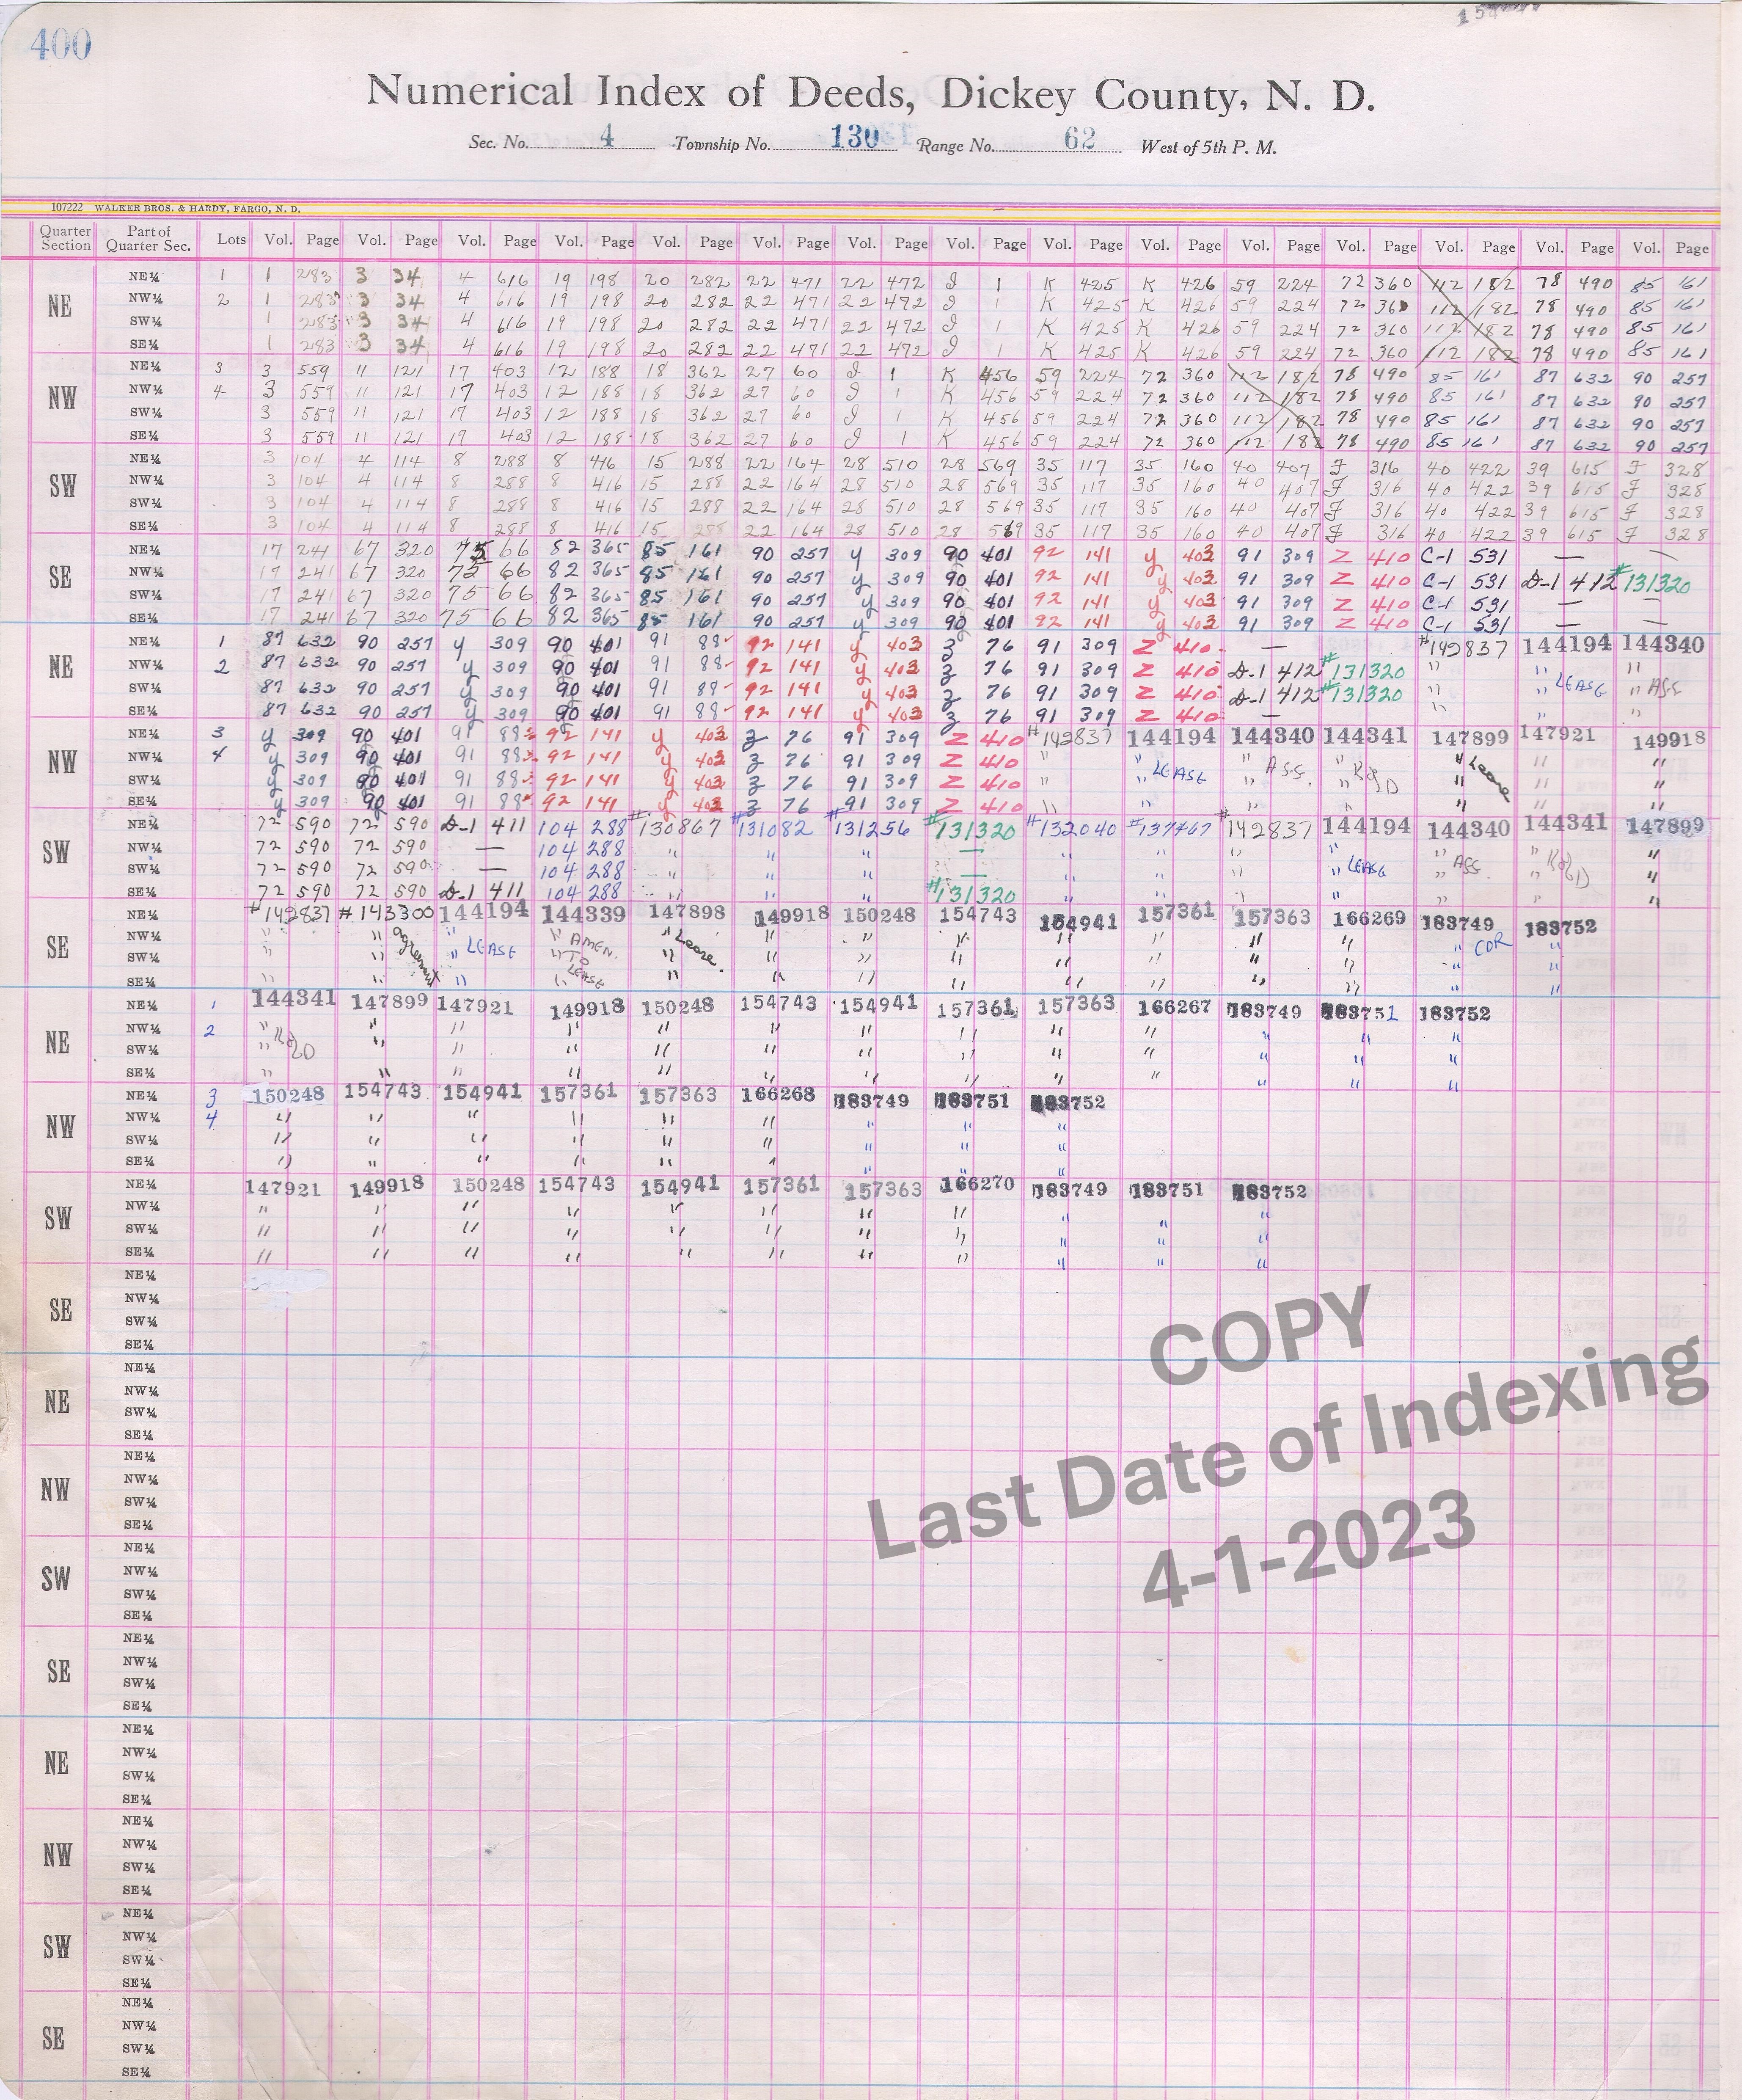 400
Numerical Index of Deeds, Dickey County, N. D.
Sec. No. 4 Township No. 130 Range No. 62 West of 5th P. M.
107222 WALKER BROS. & HARDY, FARGO, N. D.
Quarter Section Part of Quarter Sec. Lots Vol. Page Vol. Page Vol. Page Vol. Page Vol. Page Vol. Page Vol. Page Vol. Page Vol. Page Vol. Page Vol. Page Vol. Page Vol. Page Vol. Page Vol. Page
NE
NE¼ 1 1 283 3 34 4 616 19 198 20 282 22 471 22 472 I 1 K 425 K 426 59 224 72 360 112 182 78 490 85 161
NW¼ 2 1 283 3 34 4 616 19 198 20 282 22 471 22 472 I 1 K 425 K 426 59 224 72 360 112 182 78 490 85 161
SW¼ 1 283 3 34 4 616 19 198 20 282 22 471 22 472 I 1 K 425 K 426 59 224 72 360 112 182 78 490 85 161
SE¼ 1 283 3 34 4 616 19 198 20 282 22 471 22 472 I 1 K 425 K 426 59 224 72 360 112 182 78 490 85 161
NW
NE¼ 3 3 559 11 121 17 403 12 188 18 362 27 60 I 1 K 456 59 224 72 360 112 182 78 490 85 161 87 632 90 257
NW¼ 4 3 559 11 121 17 403 12 188 18 362 27 60 I 1 K 456 59 224 72 360 112 182 78 490 85 161 87 632 90 257
SW¼ 3 559 11 121 17 403 12 188 18 362 27 60 I 1 K 456 59 224 72 360 112 182 78 490 85 161 87 632 90 257
SE¼ 3 559 11 121 17 403 12 188 18 362 27 60 I 1 K 456 59 224 72 360 112 182 78 490 85 161 87 632 90 257
SW
NE¼ 3 104 4 114 8 288 8 416 15 288 22 164 28 510 28 569 35 117 35 160 40 407 F 316 40 422 39 615 F 328
NW¼ 3 104 4 114 8 288 8 416 15 288 22 164 28 510 28 569 35 117 35 160 40 407 F 316 40 422 39 615 F 328
SW¼ 3 104 4 114 8 288 8 416 15 288 22 164 28 510 28 569 35 117 35 160 40 407 F 316 40 422 39 615 F 328
SE¼ 3 104 4 114 8 288 8 416 15 288 22 164 28 510 28 569 35 117 35 160 40 407 F 316 40 422 39 615 F 328
SE
NE¼ 17 241 67 320 75 66 82 365 85 161 90 257 y 309 90 401 92 141 y 403 91 309 Z 410 C-1 531 — —
NW¼ 17 241 67 320 75 66 82 365 85 161 90 257 y 309 90 401 92 141 y 403 91 309 Z 410 C-1 531 D-1 412 #131320
SW¼ 17 241 67 320 75 66 82 365 85 161 90 257 y 309 90 401 92 141 y 403 91 309 Z 410 C-1 531 — —
SE¼ 17 241 67 320 75 66 82 365 85 161 90 257 y 309 90 401 92 141 y 403 91 309 Z 410 C-1 531 — —
NE
NE¼ 1 87 632 90 257 y 309 90 401 91 88 92 141 y 403 Z 76 91 309 Z 410 — #142837 144194 144340
NW¼ 2 87 632 90 257 y 309 90 401 91 88 92 141 y 403 Z 76 91 309 Z 410 D-1 412 #131320 " " "
SW¼ 87 632 90 257 y 309 90 401 91 88 92 141 y 403 Z 76 91 309 Z 410 D-1 412 #131320 " " LEASE " ASS
SE¼ 87 632 90 257 y 309 90 401 91 88 92 141 y 403 Z 76 91 309 Z 410 — " " "
NW
NE¼ 3 y 309 90 401 91 88 92 141 y 403 Z 76 91 309 Z 410 #142837 144194 144340 144341 147899 147921 149918
NW¼ 4 y 309 90 401 91 88 92 141 y 403 Z 76 91 309 Z 410 " " LEASE " ASS. " " Lease " "
SW¼ y 309 90 401 91 88 92 141 y 403 Z 76 91 309 Z 410 " " " " " " "
SE¼ y 309 90 401 91 88 92 141 y 403 Z 76 91 309 Z 410 " " " " " " "
SW
NE¼ 72 590 72 590 D-1 411 104 288 #130867 #131082 #131256 #131320 #132040 #137467 #142837 144194 144340 144341 147899
NW¼ 72 590 72 590 — 104 288 " " " — " " " " " " "
SW¼ 72 590 72 590 — 104 288 " " " — " " " " LEASE " ASS. " "
SE¼ 72 590 72 590 D-1 411 104 288 " " " #131320 " " " " " " "
SE
NE¼ #142837 #143300 144194 144339 147898 149918 150248 154743 154941 157361 157363 166269 183749 183752
NW¼ " " " " AMEN. " Lease. " " " " " " " " COR "
SW¼ " " " LEASE " TO " " " " " " " " " "
SE¼ " " " " LEASE " " " " " " " " " "
NE
NE¼ 1 144341 147899 147921 149918 150248 154743 154941 157361 157363 166267 183749 183751 183752
NW¼ 2 " " " " " " " " " " " " "
SW¼ " " " " " " " " " " " " "
SE¼ " " " " " " " " " " " " "
NW
NE¼ 3 150248 154743 154941 157361 157363 166268 183749 183751 183752
NW¼ 4 " " " " " " " " "
SW¼ " " " " " " " " "
SE¼ " " " " " " " " "
SW
NE¼ 147921 149918 150248 154743 154941 157361 157363 166270 183749 183751 183752
NW¼ " " " " " " " " " " "
SW¼ " " " " " " " " " " "
SE¼ " " " " " " " " " " "
SE
NE¼
NW¼
SW¼
SE¼
NE
NE¼
NW¼
SW¼
SE¼
NW
NE¼
NW¼
SW¼
SE¼
SW
NE¼
NW¼
SW¼
SE¼
SE
NE¼
NW¼
SW¼
SE¼
NE
NE¼
NW¼
SW¼
SE¼
NW
NE¼
NW¼
SW¼
SE¼
SW
NE¼
NW¼
SW¼
SE¼
SE
NE¼
NW¼
SW¼
SE¼
COPY
Last Date of Indexing
4-1-2023